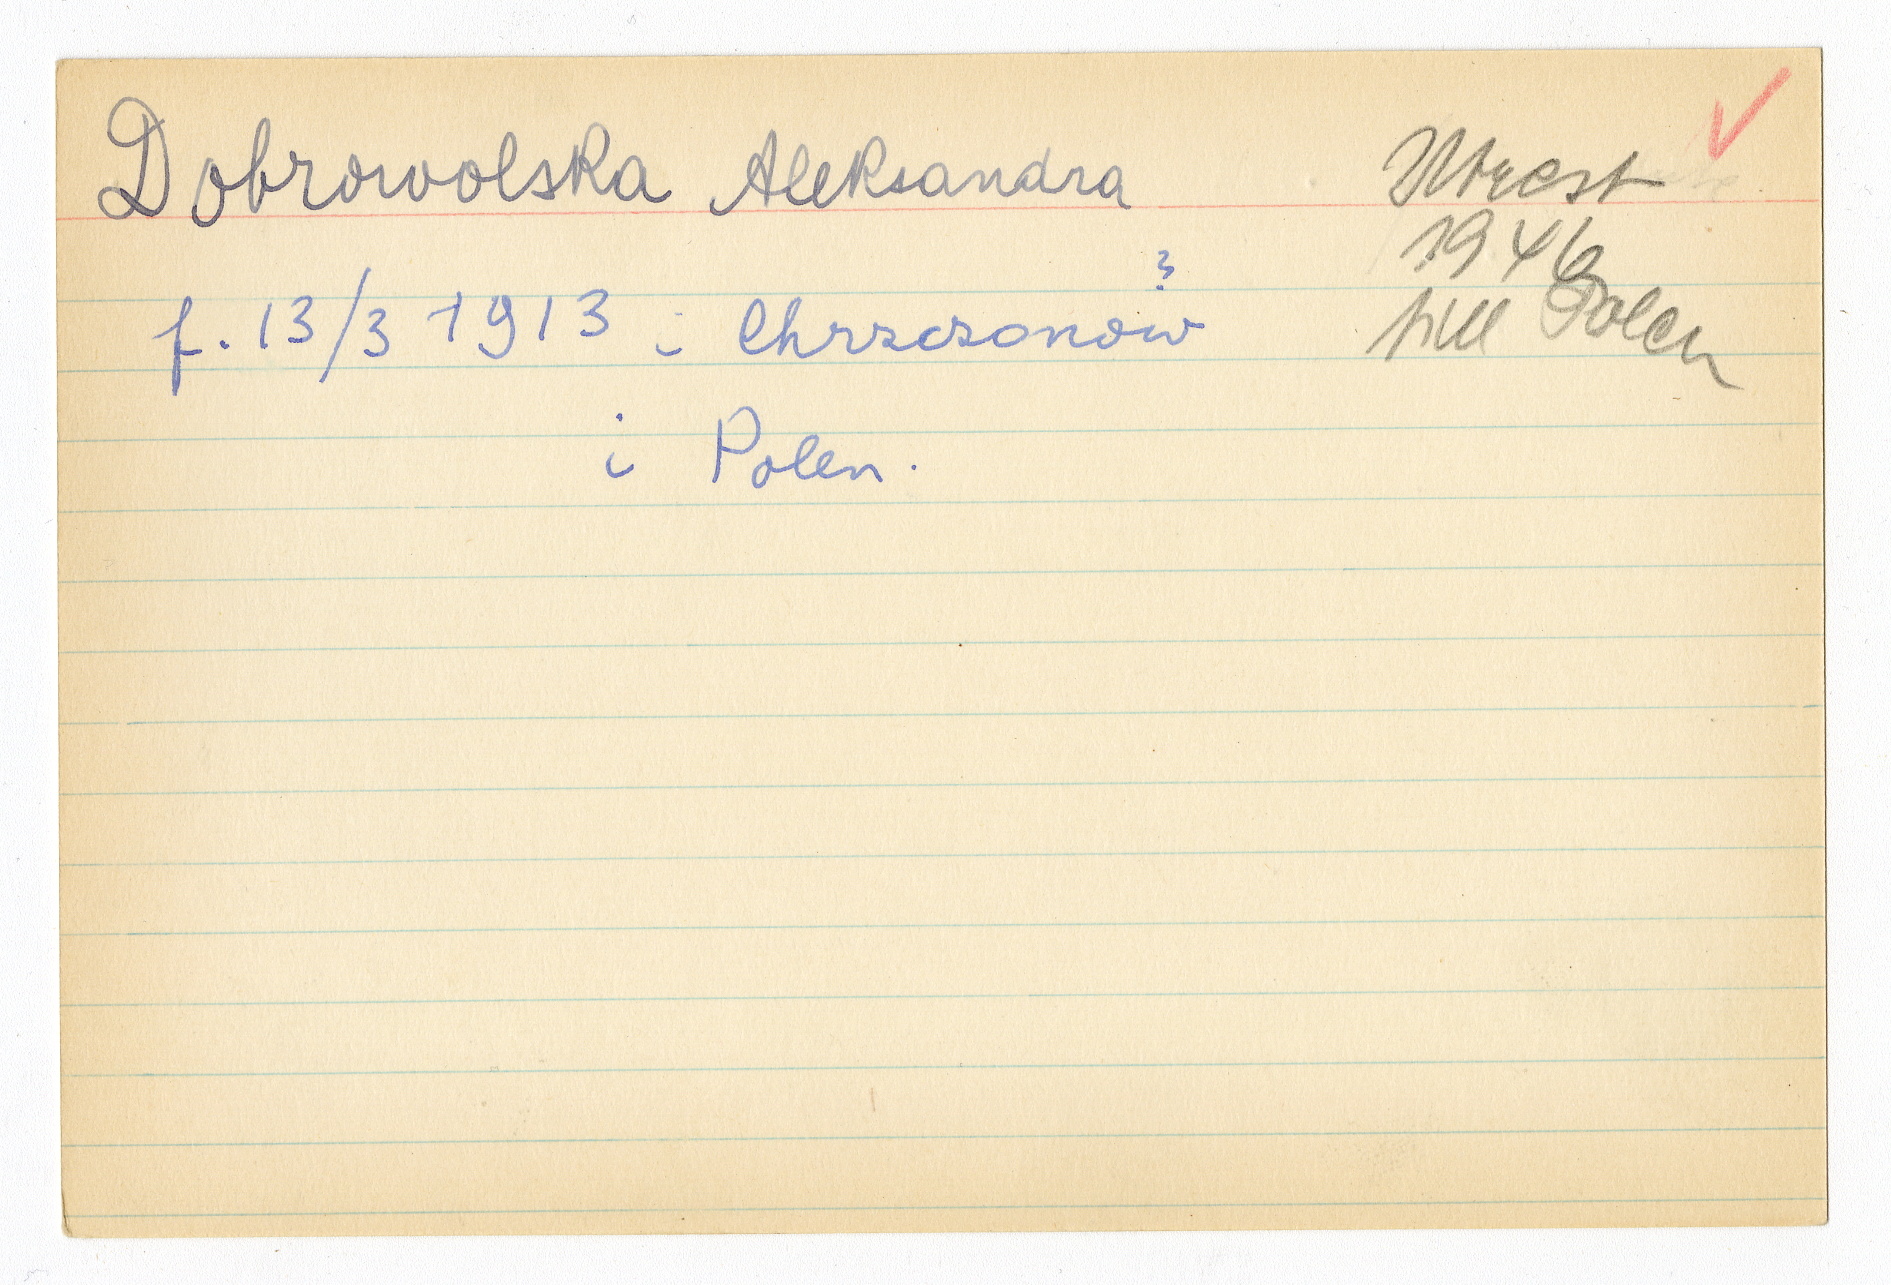 Dobrowolska Aleksandra
f. 13/3 1913 i Chrzczonów ?
i Polen.
Utrest
1946
till Polen